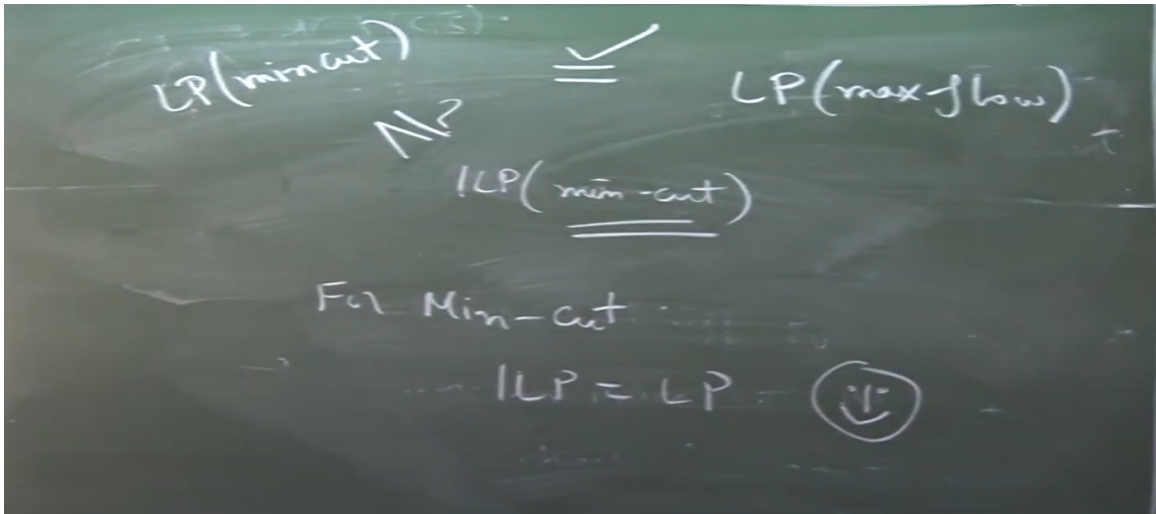 LP(min cut) = ✓ LP(max-flow)
?
ILP(min-cut)
For Min-cut
ILP = LP